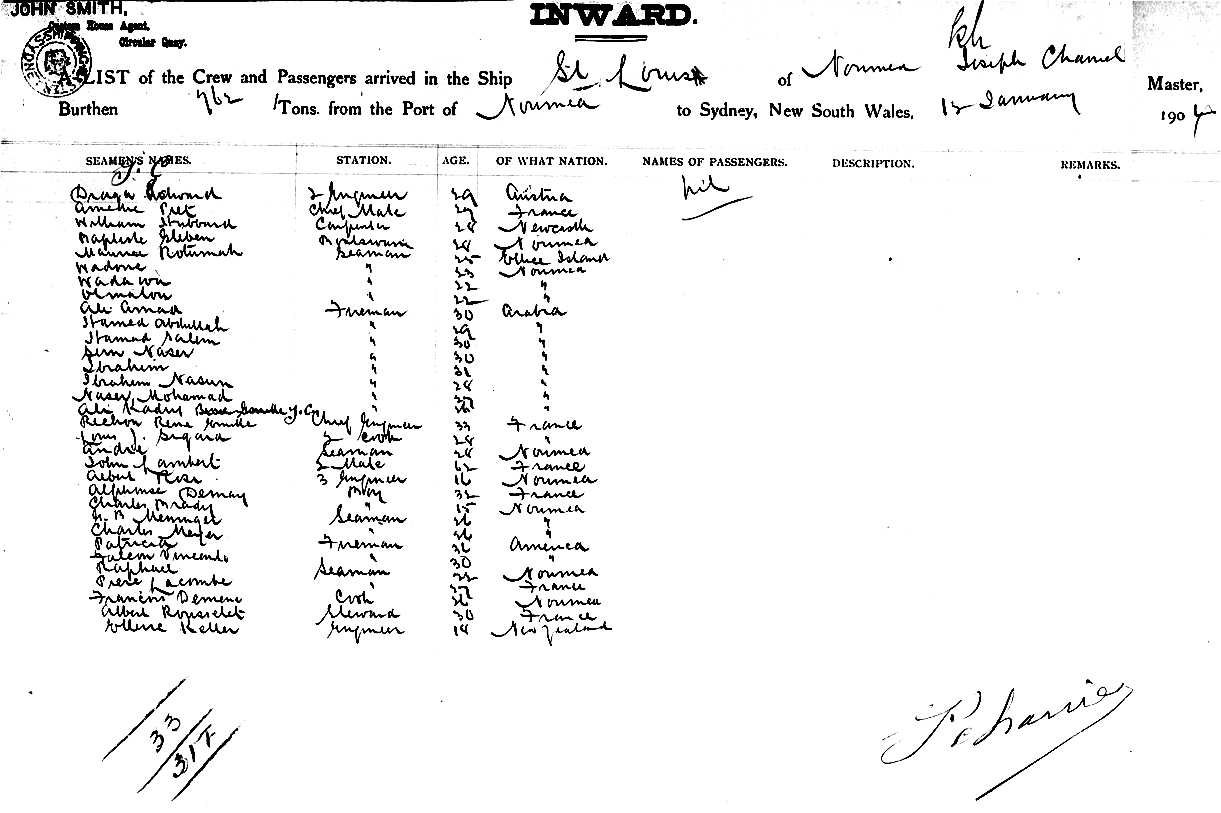 JOHN SMITH,
Custom House Agent,
Circular Quay.
INWARD.
A LIST of the Crew and Passengers arrived in the Ship St Louis of Noumea Joseph Chamel Master,
Burthen 762 Tons. from the Port of Noumea to Sydney, New South Wales, 12 January 1904
SEAMEN'S NAMES. STATION. AGE. OF WHAT NATION. NAMES OF PASSENGERS. DESCRIPTION. REMARKS.
Draga Edward 2 Engineer 29 Austria nil
Amedie Pret Chief Mate 27 France
William Stubbard Carpenter 28 Newcastle
Baptiste Gleben Boatswain 28 Noumea
Maurice Rotumah Seaman 25 Ellice Island
Wadone " 23 Noumea
Wada " 22 "
" 22 "
Ali Amad Fireman 30 Arabia
Hamed Abdullah " 29 "
Hamad Salem " 30 "
Naser " 30 "
Ibrahim " 31 "
Ibrahim Nasun " 28 "
Naser Mohamad " "
Ali " "
Rene Emile Chief Engineer 33 France
Louis J. Sigara 2 Cook 28 "
Andre Seaman 28 Noumea
John Lambert 2 Mate 62 France
Albert Rose 3 Engineer 16 Noumea
Alphonse Demay Boy 32 France
Charles Brady " 15 Noumea
Meninger Seaman "
Charles Meyer " "
Patricia Fireman America
Falcon Vincent " 30 "
Raphael Seaman 22 Noumea
Piere Lacombe " 27 France
Francois Demene Cook Noumea
Albert Rousselet Steward 30 France
Ellerie Keller Engineer 18 New Zealand
33
317